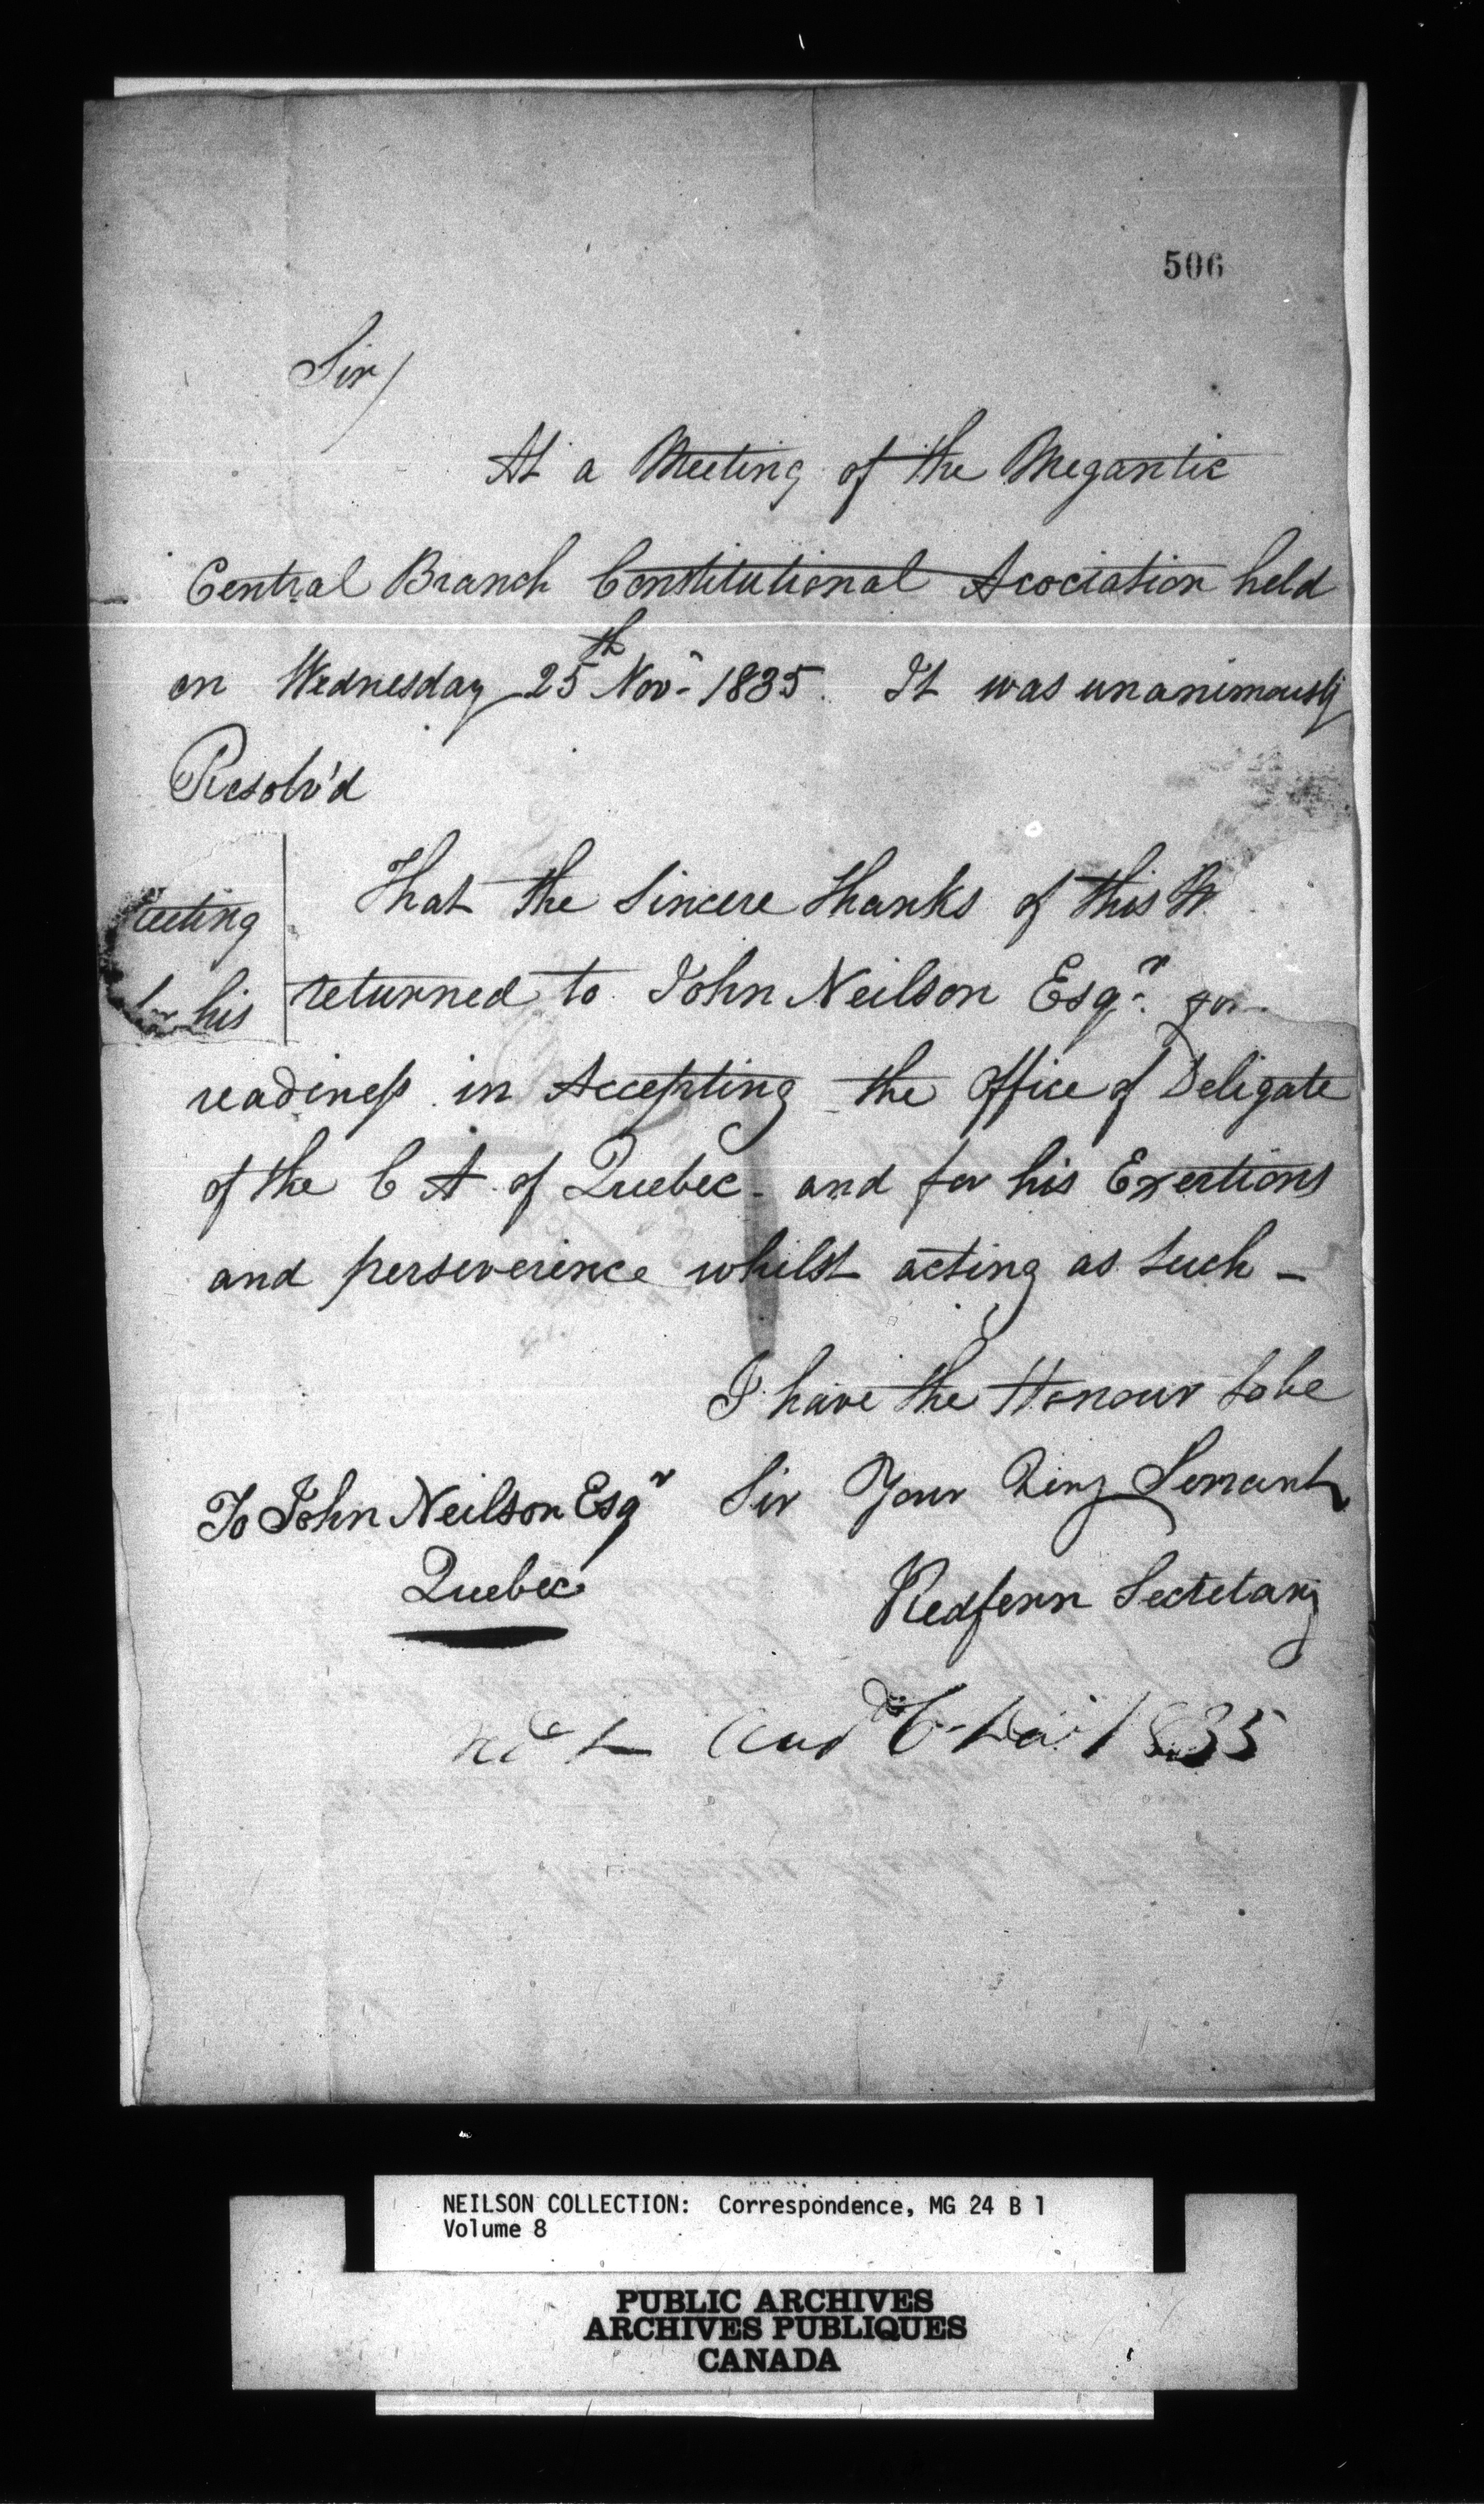 506
Sir/
At a Meeting of the Megantic
Central Branch Constitutional Asociation held
on Wednesday 25th Novr 1835. It was unanimously
Resolv'd
That the Sincere thanks of this M
eeting
returned to John Neilson Esqr. for
his
readiness in Accepting the Office of Deligate
of the C A of Quebec - and for his Exertions
and perseverince whilst acting as Such -
I have the Honour to be
Sir Your Servant
To John Neilson Esqr
Quebec
Redfern Secretary
1835
NEILSON COLLECTION: Correspondence, MG 24 B 1
Volume 8
PUBLIC ARCHIVES
ARCHIVES PUBLIQUES
CANADA